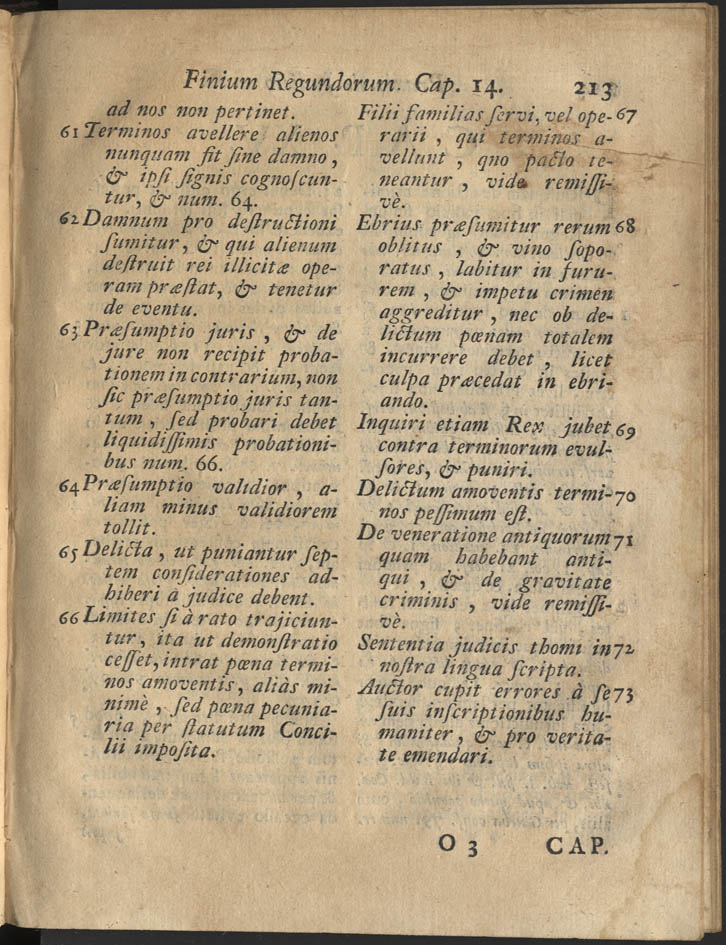 Finium Regundorum. Cap. 14. 213
ad nos non pertinet.
61 Terminos avellere alienos
nunquam fit ſine damno,
& ipſi ſignis cognoſcun-
tur, & num. 64.
62 Damnum pro deſtructioni
ſumitur, & qui alienum
deſtruit rei illicitæ ope-
ram præſtat, & tenetur
de eventu.
63 Præſumptio juris, & de
jure non recipit proba-
tionem in contrarium, non
ſic præſumptio juris tan-
tum, ſed probari debet
liquidiſſimis probationi-
bus num. 66.
64 Præſumptio validior, a-
liam minus validiorem
tollit.
65 Delicta, ut puniantur ſep-
tem conſiderationes ad-
hiberi à judice debent.
66 Limites ſi à rato trajiciun-
tur, ita ut demonſtratio
ceſſet, intrat pœna termi-
nos amoventis, aliàs mi-
nimè, ſed pœna pecunia-
ria per ſtatutum Conci-
lii impoſita.
Filii familias ſervi, vel ope- 67
rarii, qui terminos a-
vellunt, qno pacto te-
neantur, vide remiſſi-
vè.
Ebrius præſumitur rerum 68
oblitus, & vino ſopo-
ratus, labitur in furu-
rem, & impetu crimen
aggreditur, nec ob de-
lictum pœnam totalem
incurrere debet, licet
culpa præcedat in ebri-
ando.
Inquiri etiam Rex jubet 69
contra terminorum evul-
ſores, & puniri.
Delictum amoventis termi- 70
nos peſſimum eſt.
De veneratione antiquorum 71
quam habebant anti-
qui, & de gravitate
criminis, vide remiſſi-
vè.
Sententia judicis thomi in 72
noſtra lingua ſcripta.
Auctor cupit errores à ſe 73
ſuis inſcriptionibus hu-
maniter, & pro verita-
te emendari.
O 3 CAP.